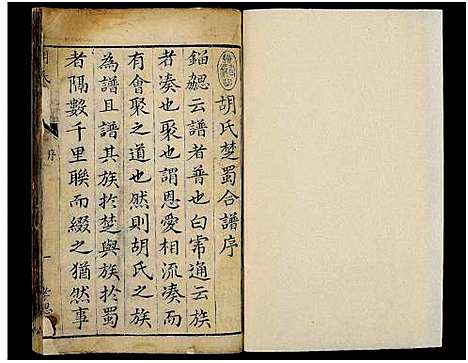 胡氏楚蜀合譜序
鎦勰云譜者普也白常通云族
者凑也聚也謂恩愛相流凑而
有會聚之道也然則胡氏之族
為譜且譜其族於楚與族於蜀
者隔數千里聯而綴之猶然事
序
一